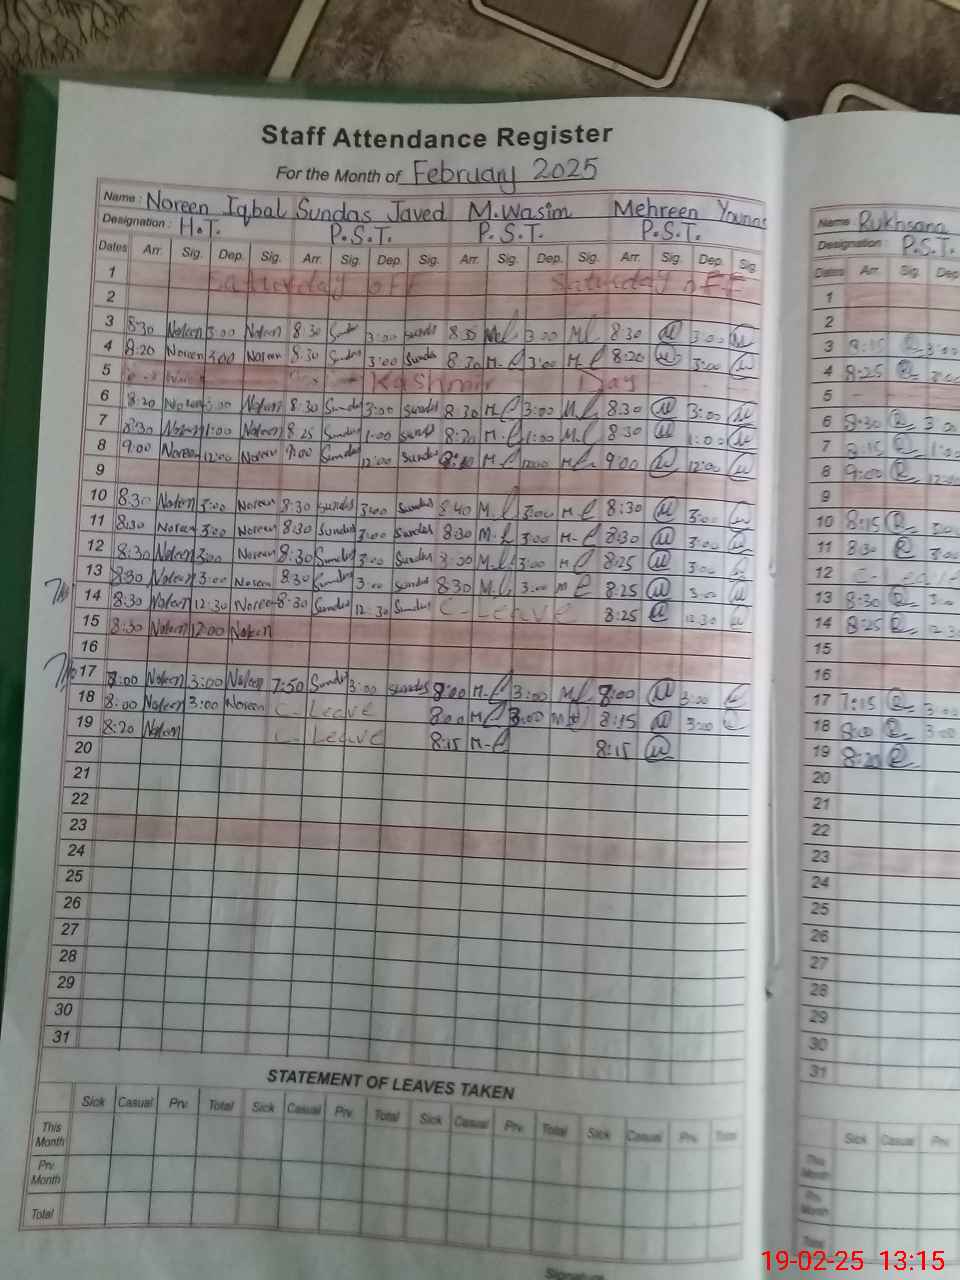 Staff Attendance Register
For the Month of February 2025
Name : Noreen Iqbal Sundas Javed M.Wasim Mehreen Younas Name Rukhsana
Designation : H.T. P.S.T. P.S.T. P.S.T. Designation : P.S.T.
Dates Arr. Sig. Dep. Sig. Arr. Sig. Dep. Sig. Arr. Sig. Dep. Sig. Arr. Sig. Dep. Sig Dates Arr. Sig. Dep
1 Saturday off Saturday off 1
2 2
3 8:30 Noreen 3:00 Noreen 8:30 3:00 Sundas 8:35 3:00 8:30 3:00 3 8:15 3:00
4 8:20 Noreen 3:00 Noreen 8:30 Sundas 3:00 Sundas 8:30 3:00 8:20 3:00 4 8:25
5 Kashmir Day 5
6 8:20 Noreen 3:00 Noreen 8:30 Sundas 3:00 Sundas 8:30 3:00 8:30 3:00 6 8:30 3:00
7 8:30 Noreen 1:00 Noreen 8:25 Sundas 1:00 Sundas 8:20 1:00 8:30 1:00 7 8:15 1:00
8 9:00 Noreen 12:00 Noreen 9:00 Sundas 12:00 Sundas 9:00 12:00 8 9:00
9 9
10 8:30 Noreen 3:00 Noreen 8:30 Sundas 3:00 Sundas 8:40 3:00 8:30 3:00 10 8:15
11 8:30 Noreen 3:00 Noreen 8:30 Sundas 3:00 Sundas 8:30 3:00 8:30 3:00 11 8:30 3:00
12 8:30 Noreen 3:00 Noreen 8:30 Sundas 3:00 Sundas 3:00 8:25 3:00 12 C-Leave
13 8:30 Noreen 3:00 Noreen 8:30 Sundas 3:00 Sundas 8:30 3:00 8:25 3:00 13 8:30
14 8:30 Noreen 12:30 Noreen 8:30 Sundas 12:30 Sundas C-Leave 8:25 12:30 14 8:25 12:3
15 8:30 Noreen 12:00 Noreen 15
16 16
17 8:00 Noreen 3:00 Noreen 7:50 Sundas 3:00 Sundas 8:00 3:00 8:00 3:00 17 7:15 3:00
18 8:00 Noreen 3:00 Noreen C-Leave 8:00 3:00 8:15 3:00 18 8:00 3:00
19 8:20 Noreen C-Leave 8:15 8:15 19 8:20
20 20
21 21
22 22
23 23
24 24
25 25
26 26
27 27
28 28
29 29
30 30
31 31
STATEMENT OF LEAVES TAKEN
Sick Casual Prv. Total Sick Casual Prv. Total Sick Casual Prv. Total Sick Casual Prv. Total Sick Casual Prv
This Month This Month
Prv. Month Prv. Month
Total Total
Signature
19-02-25 13:15